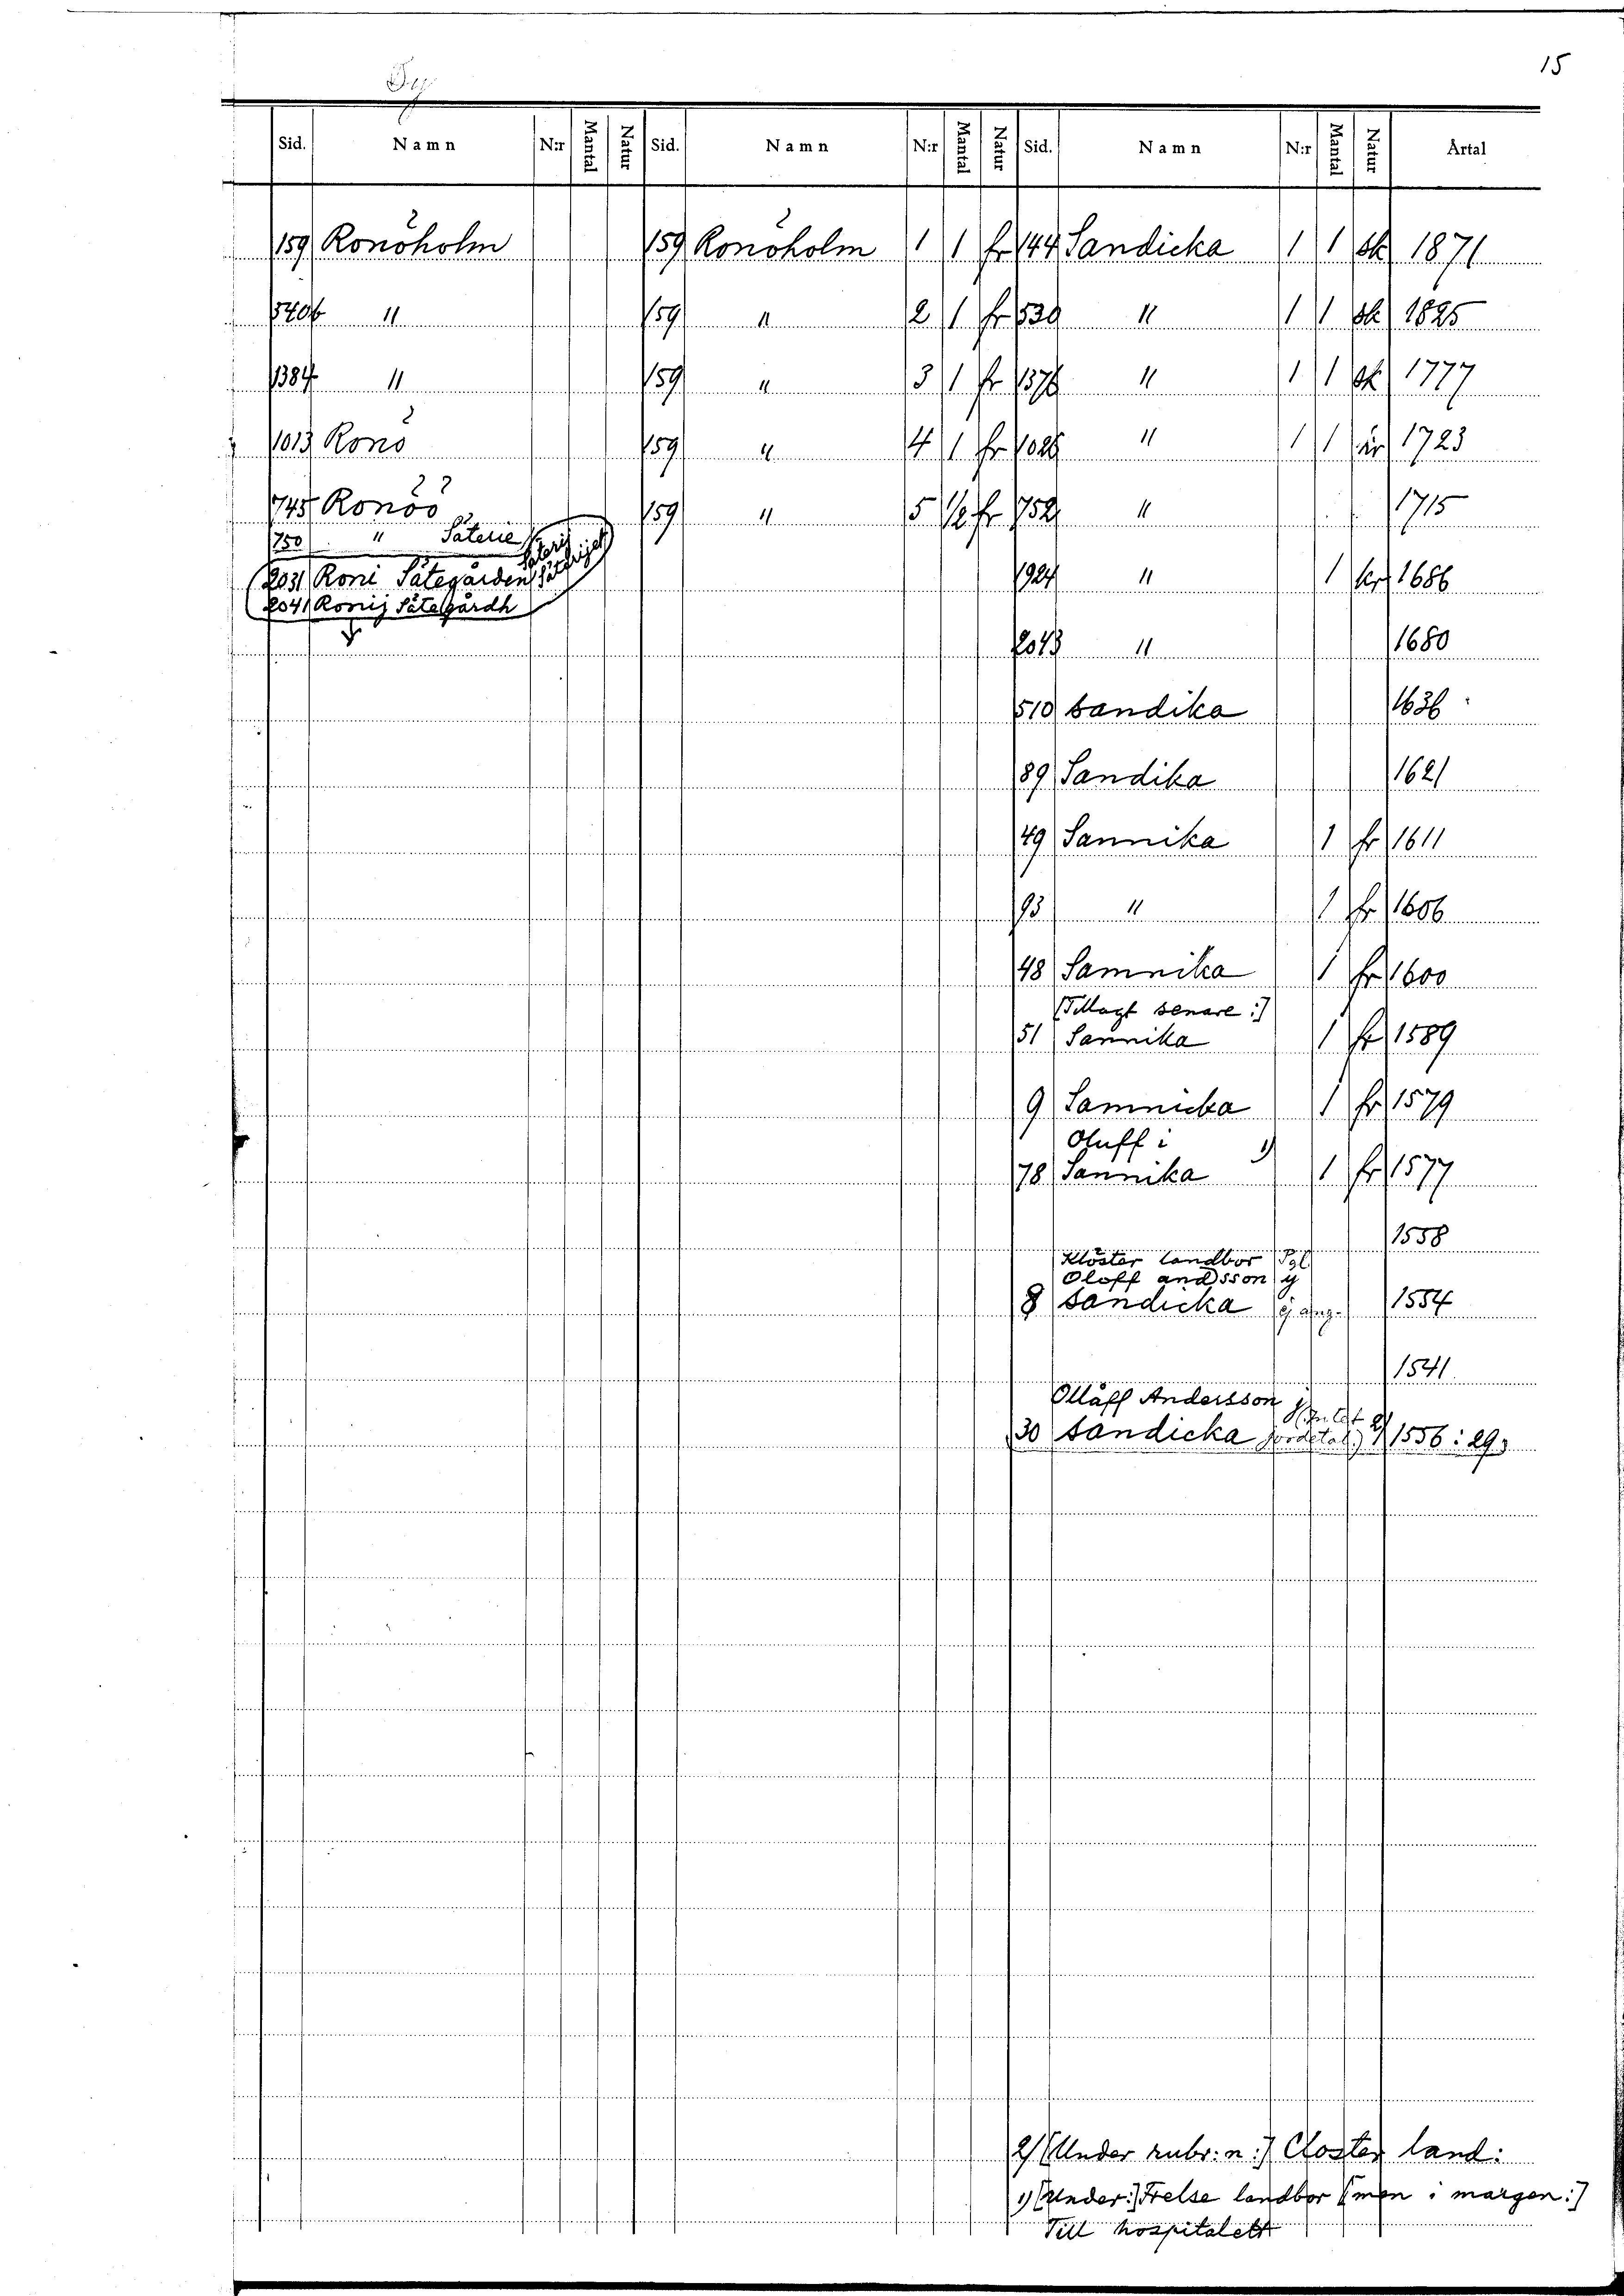 15
Sy
Sid. Namn N:r Mantal Natur Sid. Namn N:r Mantal Natur Sid. Namn N:r Mantal Natur Årtal
159 Ronöholm 159 Ronöholm 1 1 fr 144 Sandicka 1 1 sk 1871
540b " 159 " 2 1 fr 530 " 1 1 sk 1825
1384 " 159 " 3 1 fr 1376 " 1 1 sk 1777
1013 Ronö 159 " 4 1 fr 1026 " 1 1 kr 1723
745 Ronöö 159 " 5 1/2 fr 752 " 1715
750 " Säterie
Säterij
Säterijet
2031 Roni Sätegården 1924 " 1 kr 1686
2041 Ronij Sätegårdh
2043 " 1680
510 sandika 1636
89 Sandika 1621
49 Sannika 1 fr 1611
93 " 1 fr 1606
48 Samnika 1 fr 1600
[Tillagt senare:]
51 Sannika 1 fr 1589
9 Samnicka 1 fr 1579
Oluff i
78 Sannika 1) 1 fr 1577
1558
Klöster landbor
Oloff andsson y
8 sandicka ej ang. 1554
1541
Ollåff Andersson j
30 sandicka jordetal) 2) 1556:29
2) [Under rubr:n:] Closter land:
1) [Under:] Frelse landbor [men i margen:]
Till hospitalett